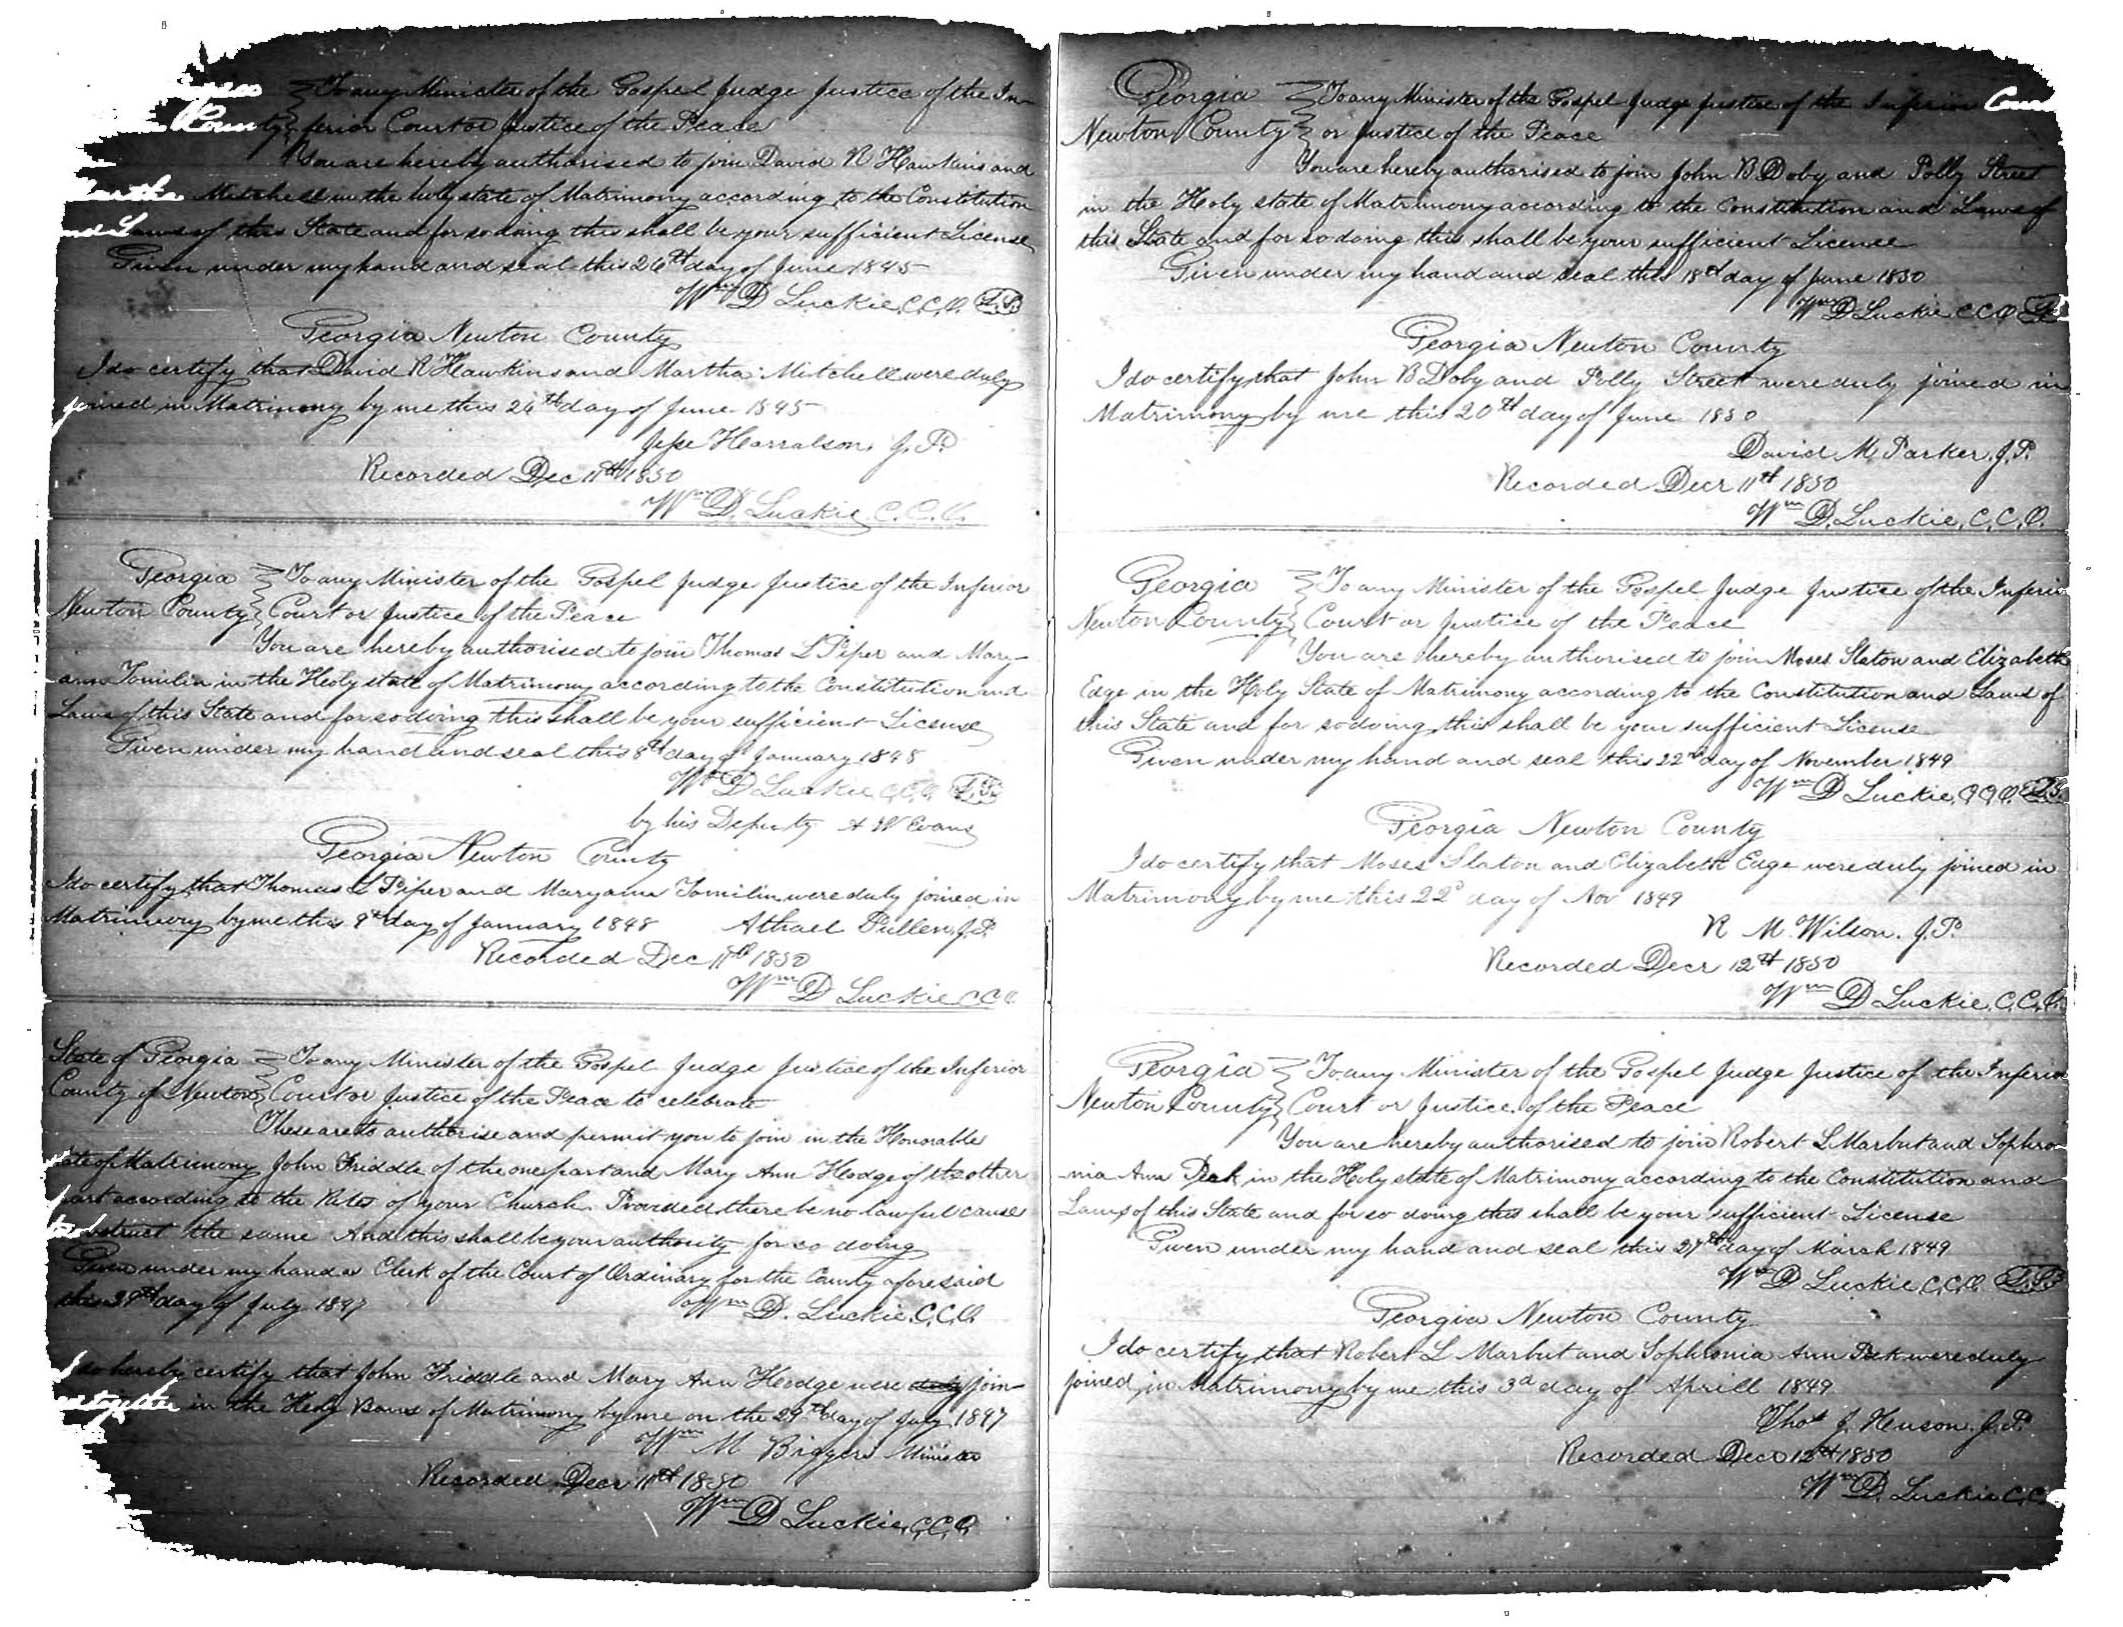 To any Minister of the Gospel Judge Justice of the In-
County ferior Court or Justice of the Peace
You are hereby authorised to join David R Hawkins and
Martha Mitchell in the holy state of Matrimony according to the Constitution
and Laws of this State and for so doing this shall be your sufficient License
Given under my hand and seal this 26th day of June 1845
Wm D Luckie C.C.O. L.S.
Georgia Newton County
I do certify that David R Hawkins and Martha Mitchell were duly
joined in Matrimony by me this 26th day of June 1845
Jesse Harralson J.P.
Recorded Dec 11th 1850
Wm D. Luckie C.C.O.
Georgia To any Minister of the Gospel Judge Justice of the Inferior
Newton County Court or Justice of the Peace
You are hereby authorised to join Thomas L Piper and Mary-
ann Tomilin in the Holy state of Matrimony according to the Constitution and
Laws of this State and for so doing this shall be your sufficient License
Given under my hand and seal this 8th day of January 1848
Wm D Luckie C.C.O. L.S.
by his Deputy A W Evans
Georgia Newton County
I do certify that Thomas L Piper and Maryann Tomilin were duly joined in
Matrimony by me this 9th day of January 1848 Athael Pullen J.P.
Recorded Dec 11th 1850
Wm D Luckie C.C.O.
State of Georgia To any Minister of the Gospel Judge Justice of the Inferior
County of Newton Court or Justice of the Peace to celebrate
These are to authorise and permit you to join in the Honorable
state of Matrimony John Friddle of the one part and Mary Ann Hodge of the other
part according to the Rites of your Church. Provided there be no lawful cause
to obstruct the same And this shall be your authority for so doing
Given under my hand as Clerk of the Court of Ordinary for the County aforesaid
this 29th day of July 1847 Wm D. Luckie C.C.O.
I do hereby certify that John Friddle and Mary Ann Hodge were duly join-
ed together in the Holy Bans of Matrimony by me on the 29th day of July 1847
Wm M Biggers Minister
Recorded Decr 11th 1850
Wm D Luckie, C.C.O.
Georgia To any Minister of the Gospel Judge Justice of the Inferior Court
Newton County or Justice of the Peace
You are hereby authorised to join John B Doby and Polly Street
in the Holy state of Matrimony according to the Constitution and Laws of
this State and for so doing this shall be your sufficient Licence
Given under my hand and seal this 18th day of June 1850
Wm D Luckie C C O L.S.
Georgia Newton County
I do certify that John B Doby and Polly Street were duly joined in
Matrimony by me this 20th day of June 1850
David M Parker J.P.
Recorded Decr 11th 1850
Wm D. Luckie, C.C.O.
Georgia To any Minister of the Gospel Judge Justice of the Inferior
Newton County Court or Justice of the Peace
You are hereby authorised to join Moses Slaton and Elizabeth
Edge in the Holy State of Matrimony according to the Constitution and Laws of
this State and for so doing this shall be your sufficient License
Given under my hand and seal this 22nd day of November 1849
Wm D Luckie, C.C.O. L.S.
Georgia Newton County
I do certify that Moses Slaton and Elizabeth Edge were duly joined in
Matrimony by me this 22d day of Nov 1849
R M. Wilson. J.P.
Recorded Decr 12th 1850
Wm D Luckie, C.C.O.
Georgia To any Minister of the Gospel Judge Justice of the Inferior
Newton County Court or Justice of the Peace
You are hereby authorised to join Robert L Marbut and Sophro-
nia Ann Peek in the Holy state of Matrimony according to the Constitution and
Laws of this State and for so doing this shall be your sufficient License
Given under my hand and seal this 27th day of March 1849
Wm D Luckie C.C.O. L.S.
Georgia Newton County
I do certify that Robert L Marbut and Sophronia Ann Peek were duly
joined in Matrimony by me this 3d day of Aprill 1849
Thos J. Henson. J.P.
Recorded Decr 12th 1850
Wm D. Luckie C.C.